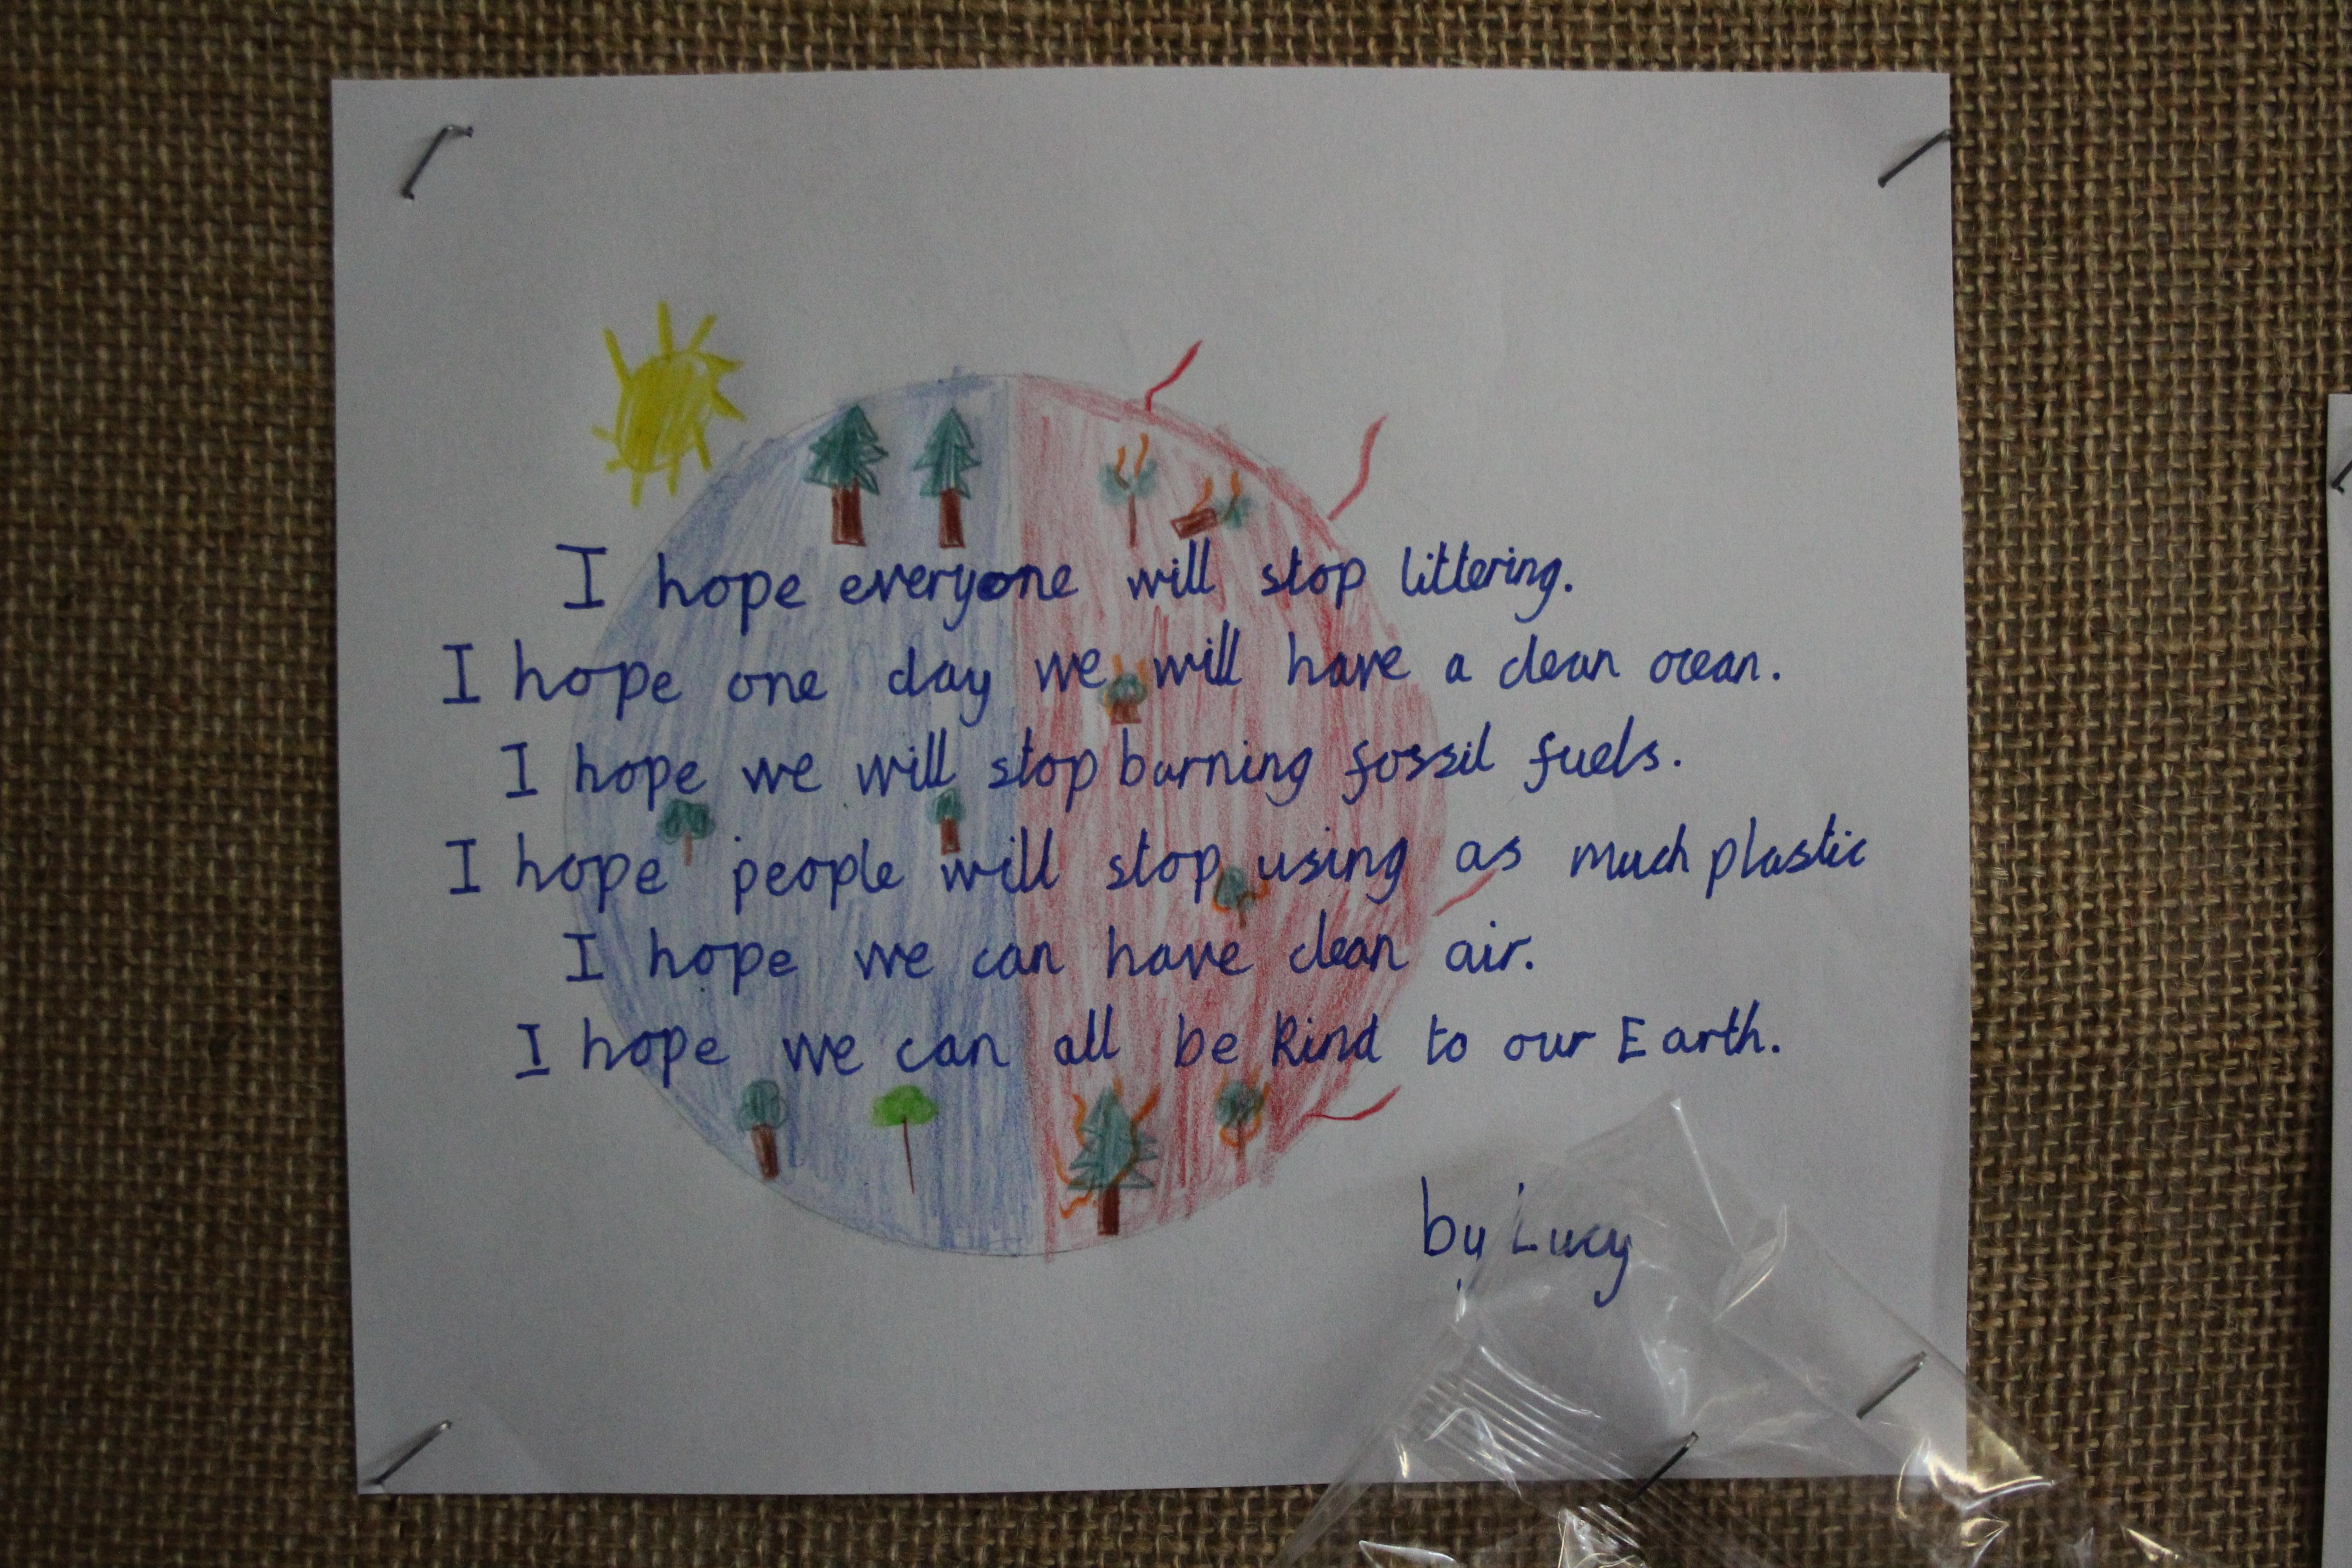 I hope everyone will stop littering.
I hope one day we will have a clean ocean.
I hope we will stop burning fossil fuels.
I hope people will stop using as much plastic
I hope we can have clean air.
I hope we can all be kind to our Earth.
by Lucy